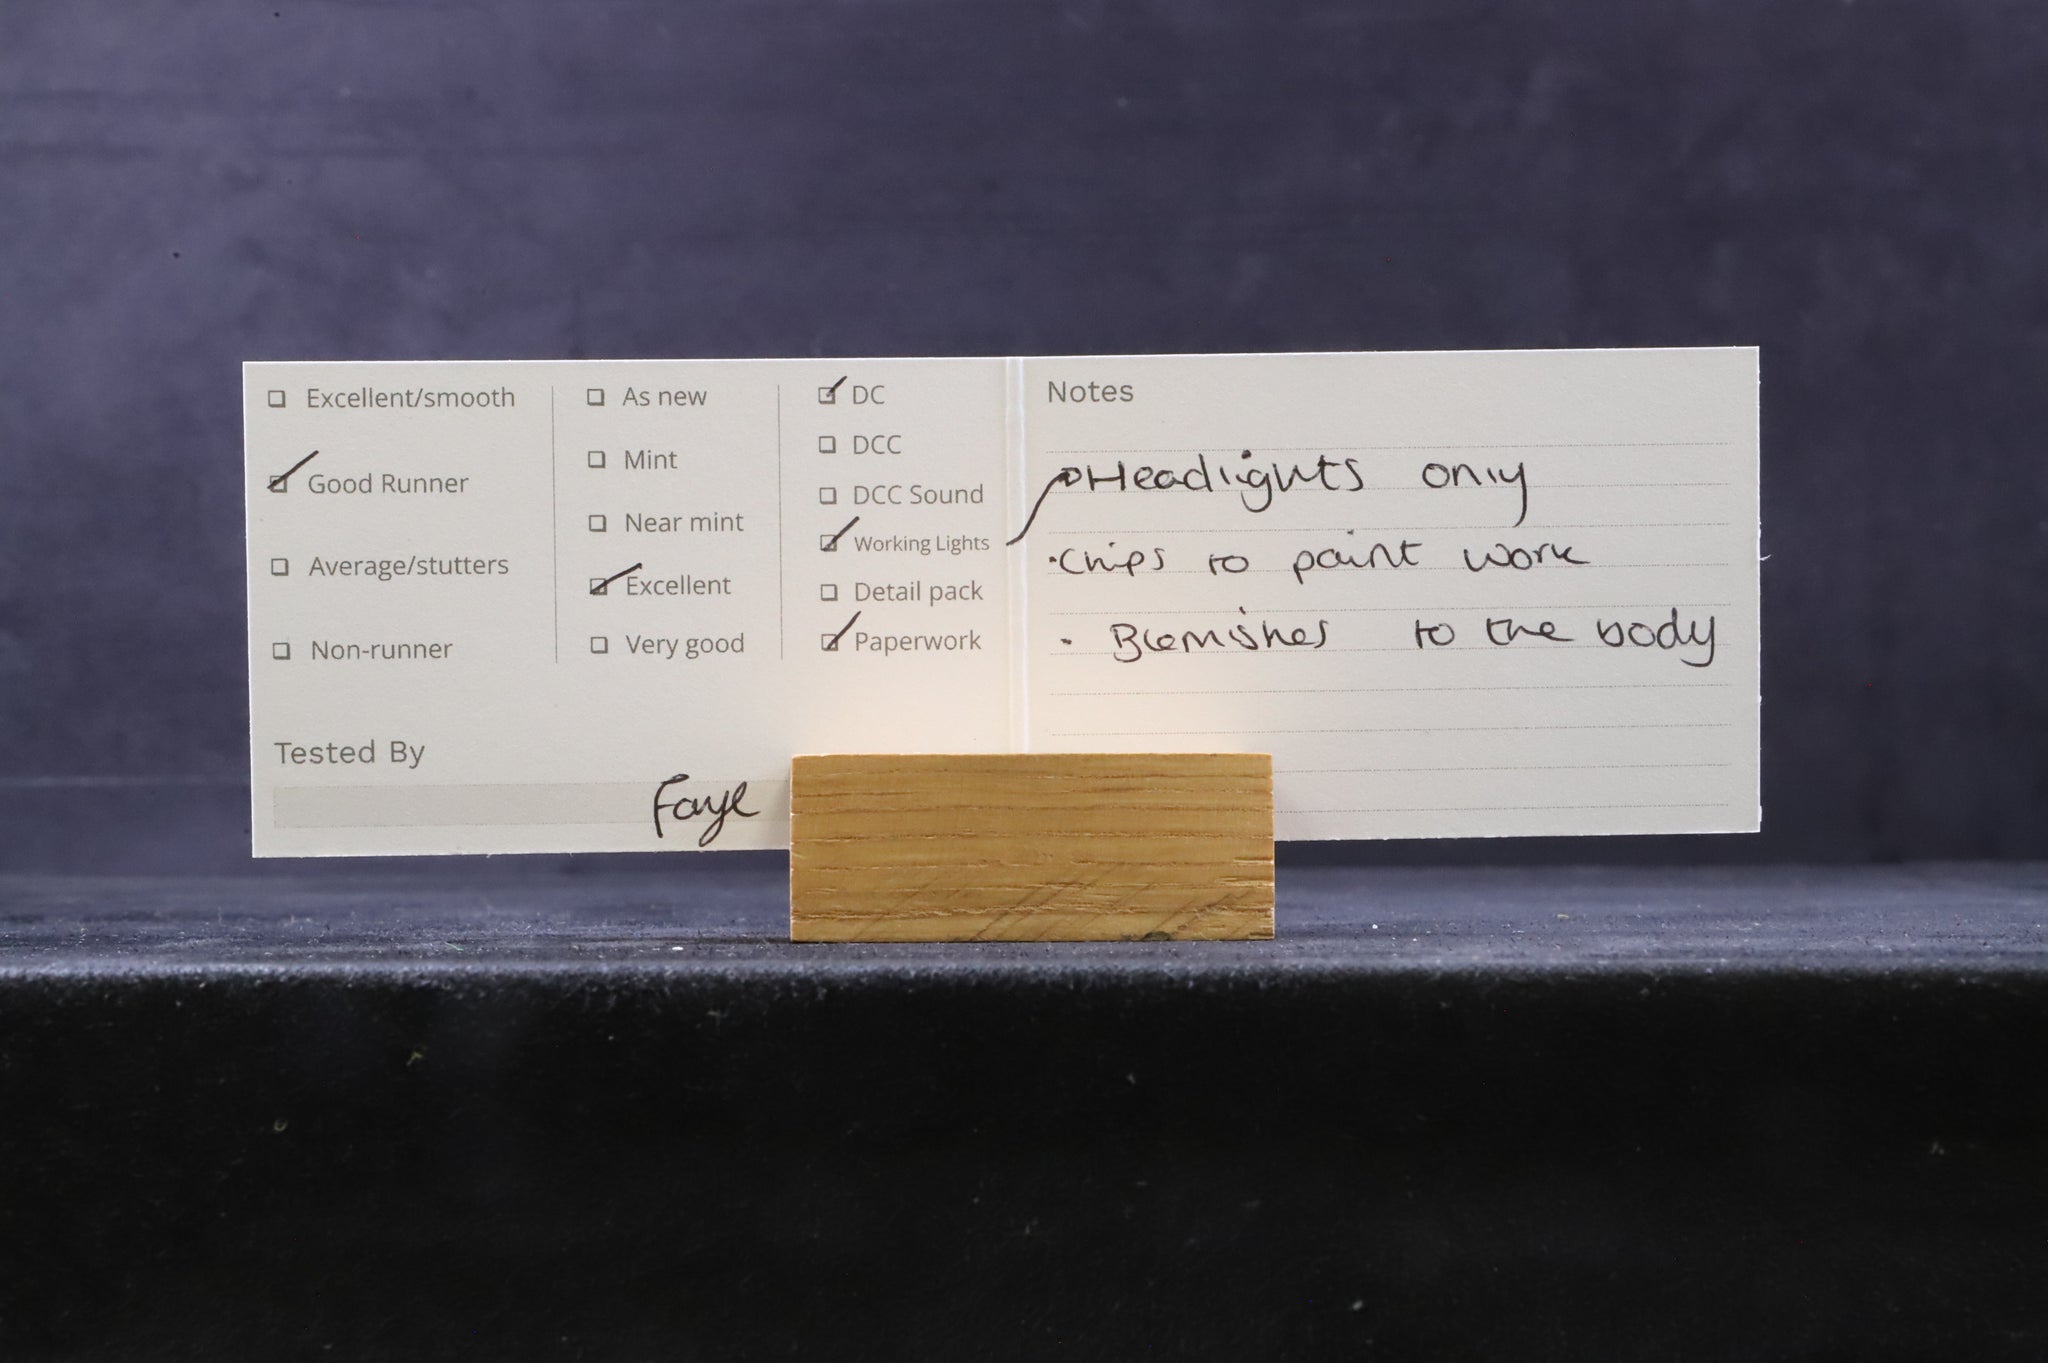 Excellent/smooth
Good Runner
Average/stutters
Non-runner
As new
Mint
Near mint
Excellent
Very good
DC
DCC
DCC Sound
Working Lights
Detail pack
Paperwork
Tested By
Faye
Notes
Headlights only
• Chips to paint work
• Blemishes to the body